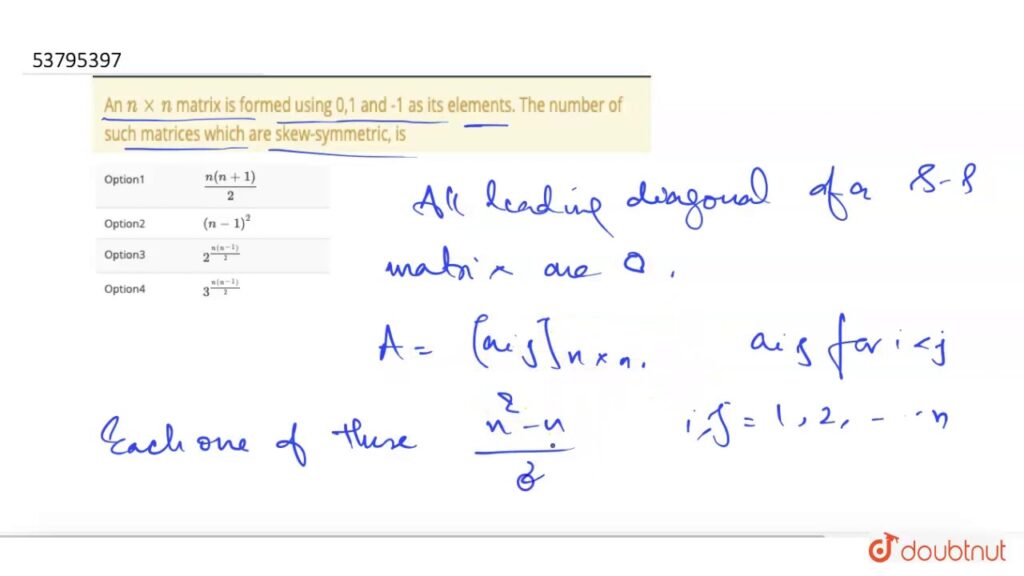 53795397
An n × n matrix is formed using 0,1 and -1 as its elements. The number of
such matrices which are skew-symmetric, is
Option1 n(n + 1)/2
Option2 (n − 1)²
Option3 2^(n(n−1)/2)
Option4 3^(n(n−1)/2)
All leading diagonal of a S-S
matrix are 0.
A = [aij]n×n. aij for i<j
i,j = 1, 2, - - - n
Each one of these n²-n/2
doubtnut